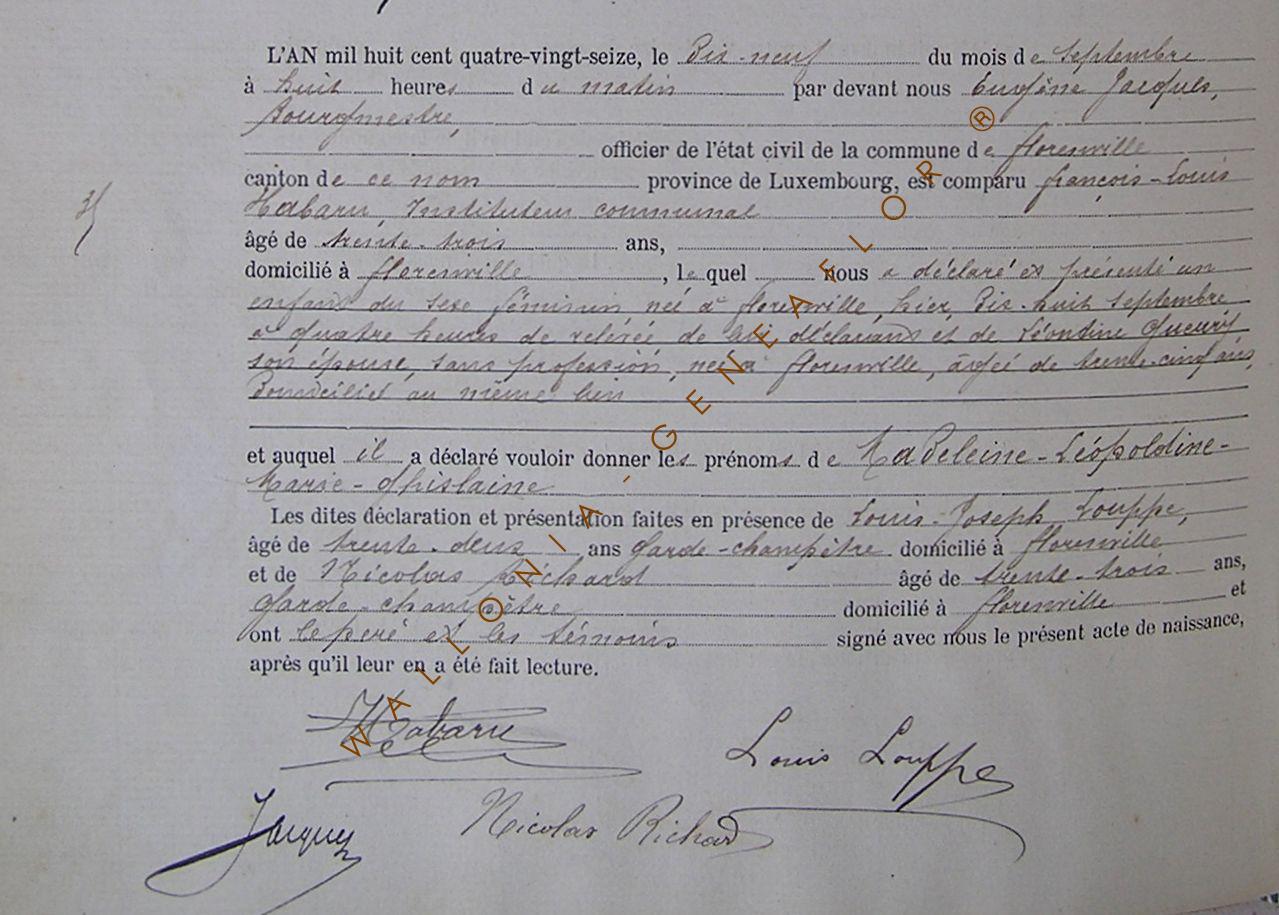 L'AN mil huit cent quatre-vingt-seize, le Dix-neuf du mois de Septembre
à huit heures du matin par devant nous Eugène Jacques,
Bourgmestre,
officier de l'état civil de la commune de florenville
canton de ce nom province de Luxembourg, est comparu françois-Louis
Habaru, Instituteur communal
âgé de trente-trois ans,
domicilié à florenville, lequel nous a déclaré et présenté un
enfant du sexe féminin née à florenville, hier, Dix-huit Septembre
à quatre heures de relevée de lui déclarant et de Léontine
son épouse, sans profession, née à florenville, âgée de trente-cinq ans,
Domiciliée au même lieu
et auquel il a déclaré vouloir donner les prénoms de Madeleine-Léopoldine-
Marie-Ghislaine
Les dites déclaration et présentation faites en présence de Louis-Joseph Louppe,
âgé de trente-deux ans garde-champêtre domicilié à florenville
et de Nicolas Richard âgé de trente-trois ans,
Garde-champêtre domicilié à florenville et
ont le père et les témoins signé avec nous le présent acte de naissance,
après qu'il leur en a été fait lecture.
Habaru
Louis Louppe
Jacques
Nicolas Richard
WALLONIA-GENEAFLOR ®